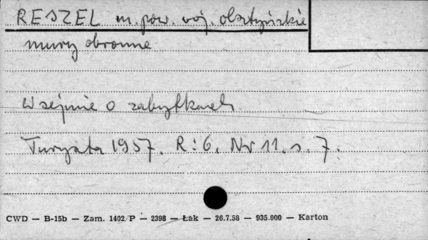 RESZEL m. pow. woj. olsztyńskie
mury obronne
W sejmie o zabytkach
Turysta 1957. R: 6. Nr 11. s. 7.
CWD — B-15b — Zam. 1402/P — 2398 — Łak — 26.7.56 — 935.000 — Karton